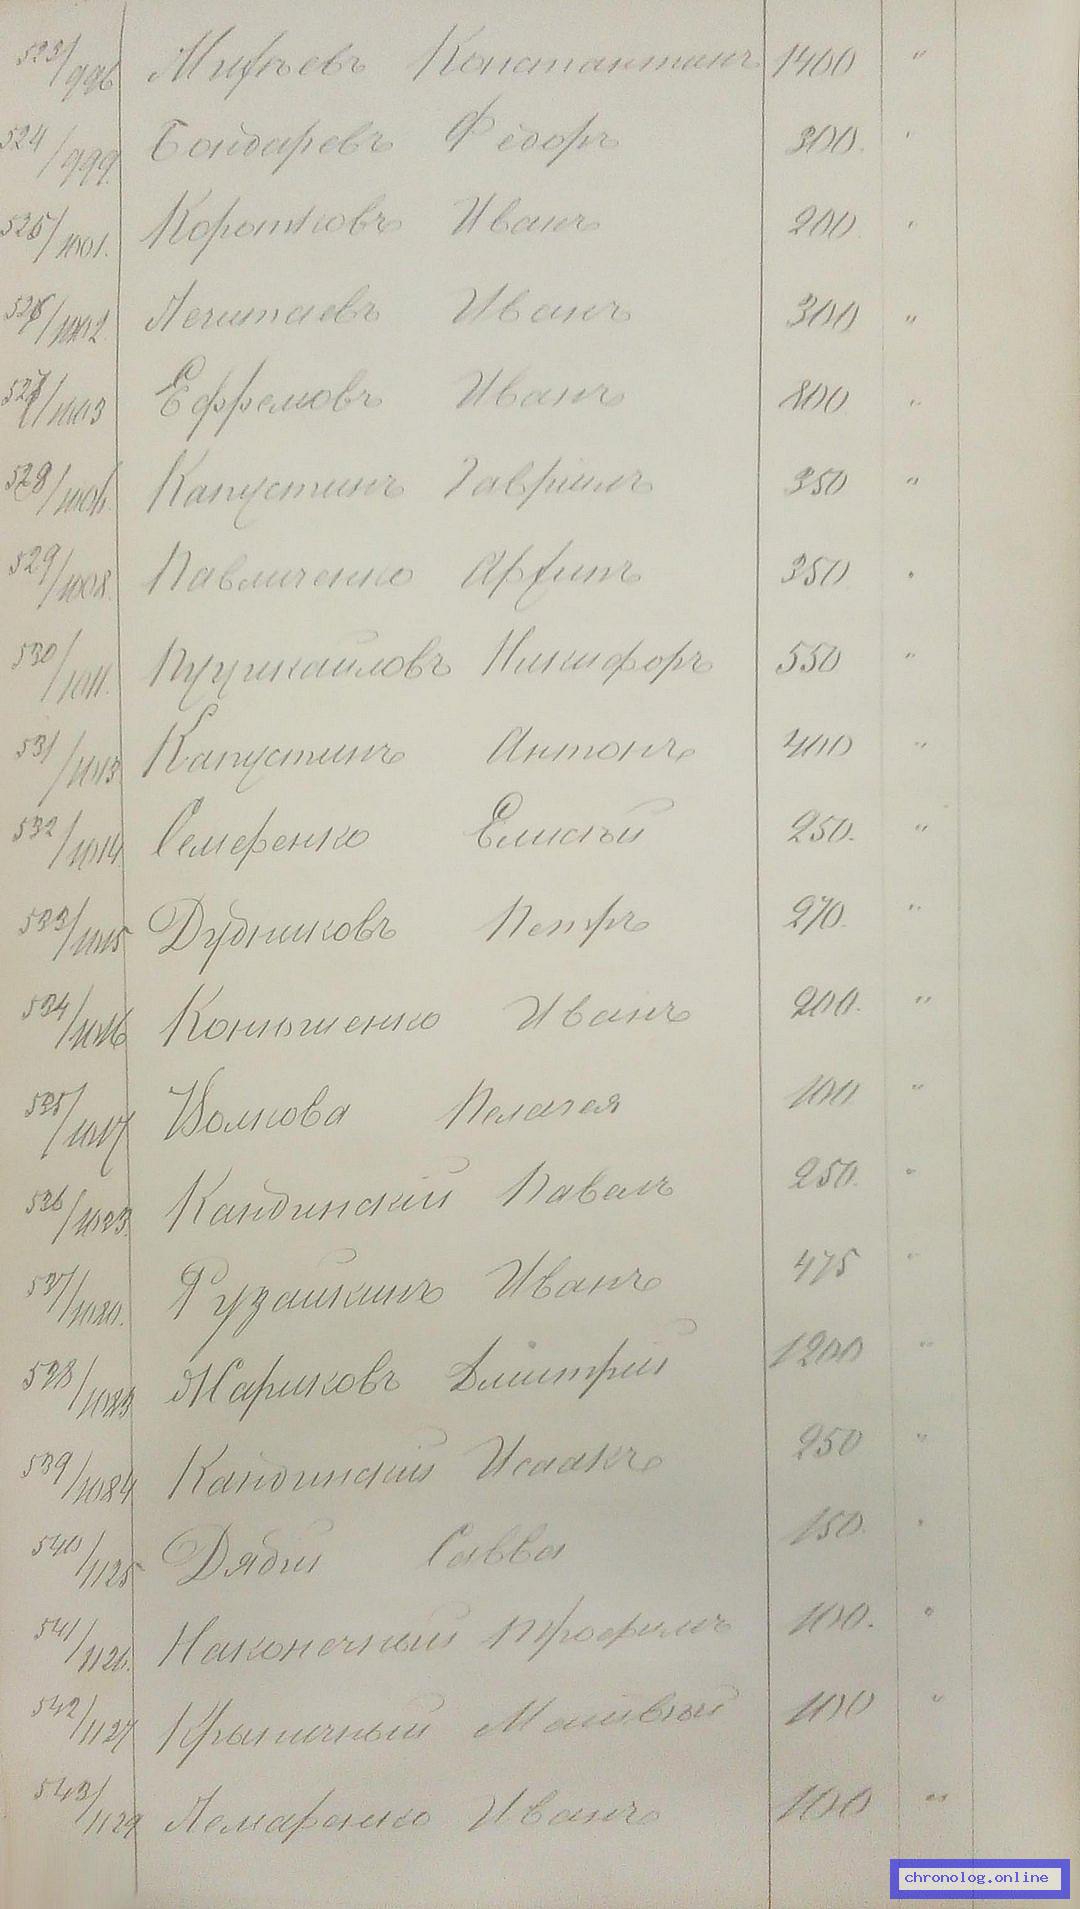 523/996 Михѣевъ Константинъ 1400 "
524/999. Бондаревъ Ѳедоръ 300. "
525/1001. Коротковъ Иванъ 200 "
526/1002. Иванъ 300 "
527/1003 Ефремовъ Иванъ 800 "
528/1006. Капустинъ Гавріилъ 350 "
529/1008. Павличенко Архипъ 350 "
530/1011. Никифоръ 550 "
531/1013 Капустинъ Антонъ 400 "
532/1014. Семеренко Елисѣй 250. "
533/1015 Дудниковъ Петръ 270. "
534/1016 Конюшенко Иванъ 200. "
535/1017 Волкова Пелагея 100 "
536/1023. Кандинскій Павелъ 250. "
537/1080. Рузайкинъ Иванъ 475 "
538/1083 Жариковъ Дмитрій 1200 "
539/1084 Кандинскій Исаакъ 250 "
540/1125 Дядій Савва 150. "
541/1126. Наконечный Трофимъ 100. "
542/1127 Крыничный Матвѣй 100 "
543/1129 Иванъ 100 "
chronolog.online